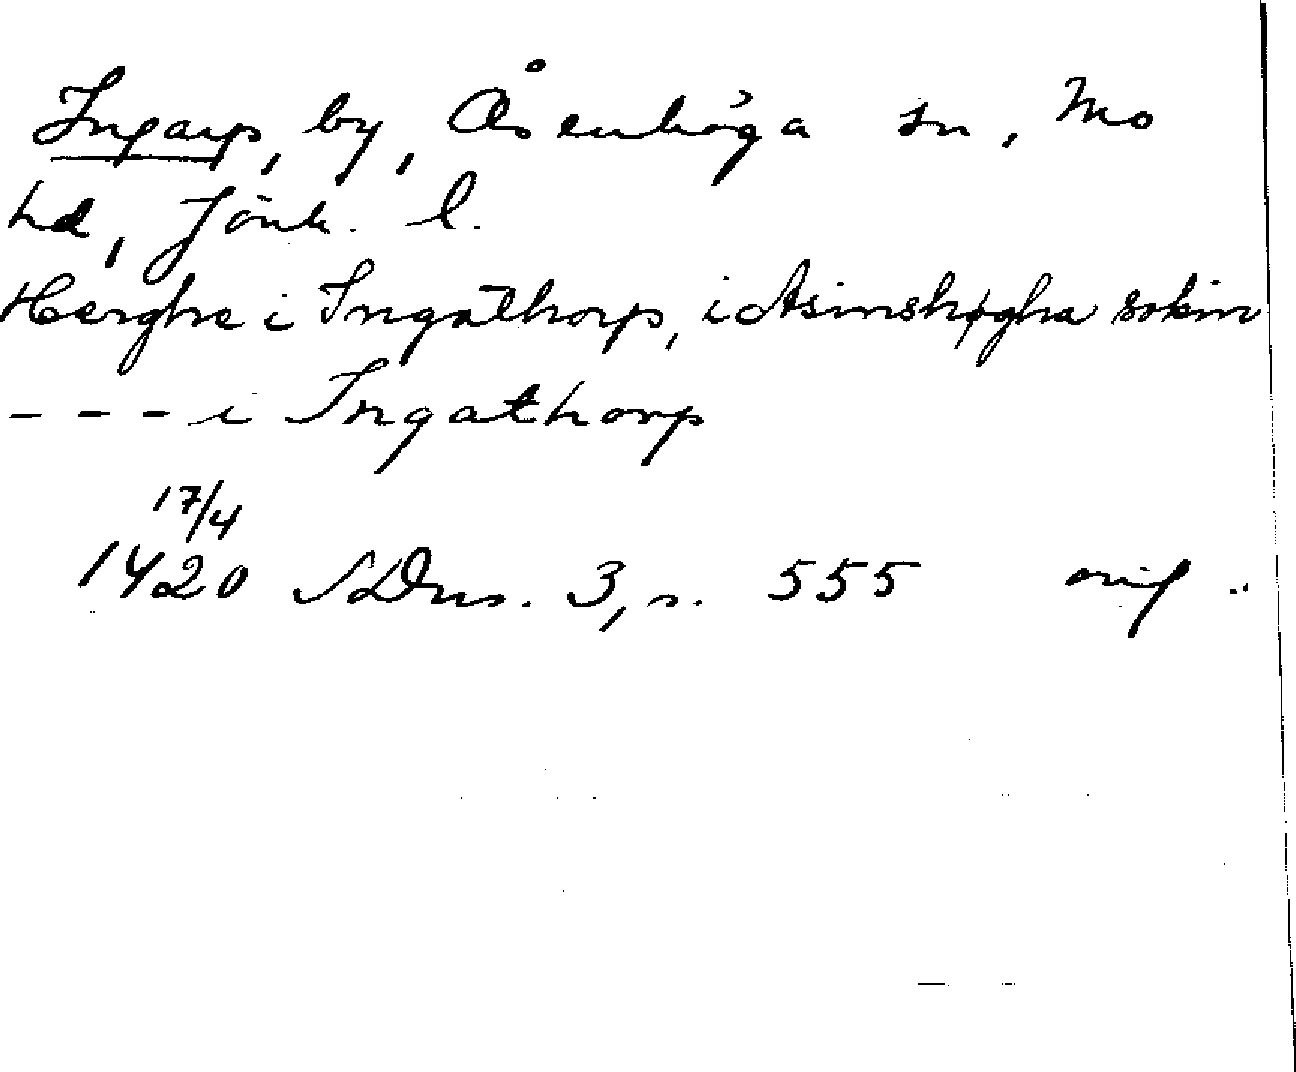 Ingarp, by, Åsenhöga sn, Mo
hd, Jönk. l.
Herghe i Ingathorp, i Asinshøgha sokin
- - - i Ingathorp
17/4
1420 SDns. 3, s. 555 orig.